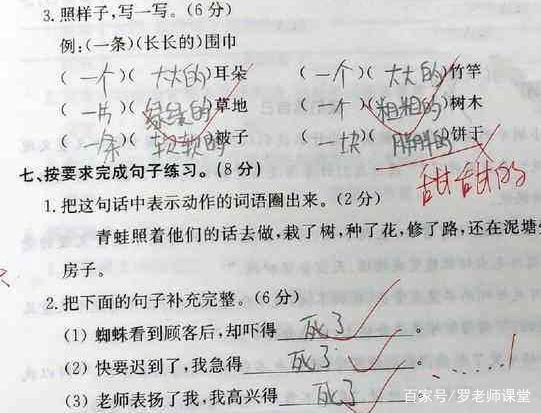 3.照样子,写一写。(6分)
例:(一条)(长长的)围巾
(一个)(大大的)耳朵 (一个)(大大的)竹竿
(一片)(绿绿的)草地 (一个)(粗粗的)树木
(一条)(软软的)被子 (一块)(胖胖的)饼干
甜甜的
七、按要求完成句子练习。(8分)
1.把这句话中表示动作的词语圈出来。(2分)
青蛙照着他们的话去做,栽了树,种了花,修了路,还在泥塘
房子。
2.把下面的句子补充完整。(6分)
(1)蜘蛛看到顾客后,却吓得死了。
(2)快要迟到了,我急得死了。......!
(3)老师表扬了我,我高兴得死了
百家号/罗老师课堂